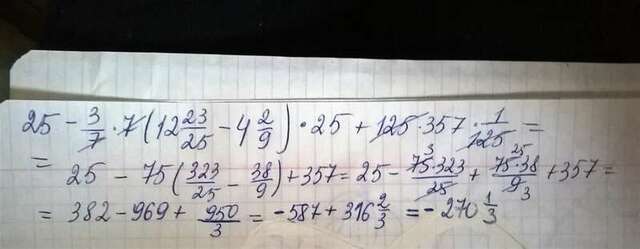 25 - 3/7 · 7 (12 23/25 - 4 2/9) · 25 + 125 · 357 · 1/125 =
= 25 - 75 (323/25 - 38/9) + 357 = 25 - 75·323/25 3 + 75·38/9 25 3 + 357 =
= 382 - 969 + 950/3 = -587 + 316 2/3 = -270 1/3